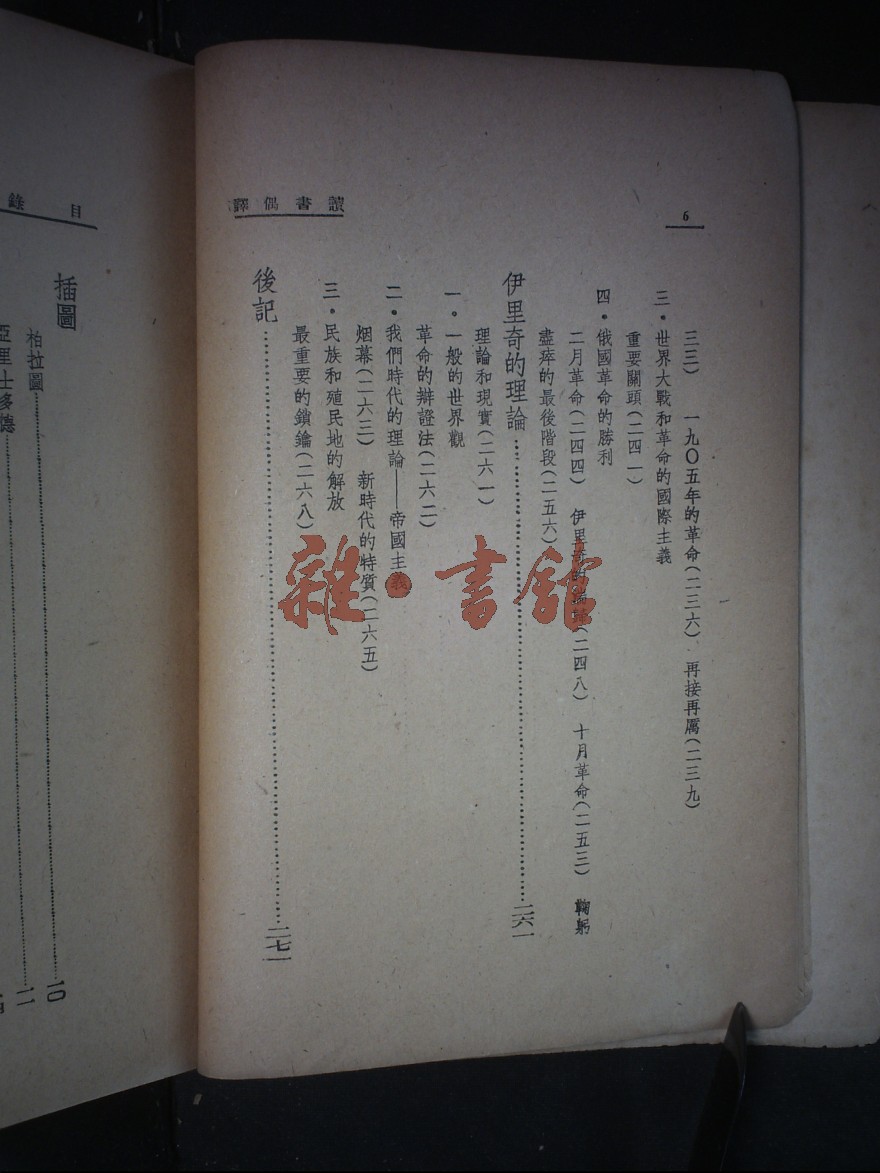 讀書偶譯
6
三三) 一九〇五年的革命(二三六) 再接再厲(二三九)
三・世界大戰和革命的國際主義
重要關頭(二四一)
四・俄國革命的勝利
二月革命(二四四) 伊里奇的(二四八) 十月革命(二五三) 鞠躬
盡瘁的最後階段(二五六)
伊里奇的理論……二六一
理論和現實(二六一)
一・一般的世界觀
革命的辯證法(二六二)
二・我們時代的理論——帝國主義
烟幕(二六三) 新時代的特質(二六五)
三・民族和殖民地的解放
最重要的鎖鑰(二六八)
後記……二七一
雜・書館
目錄
插圖
柏拉圖……一〇
亞里士多德……一一